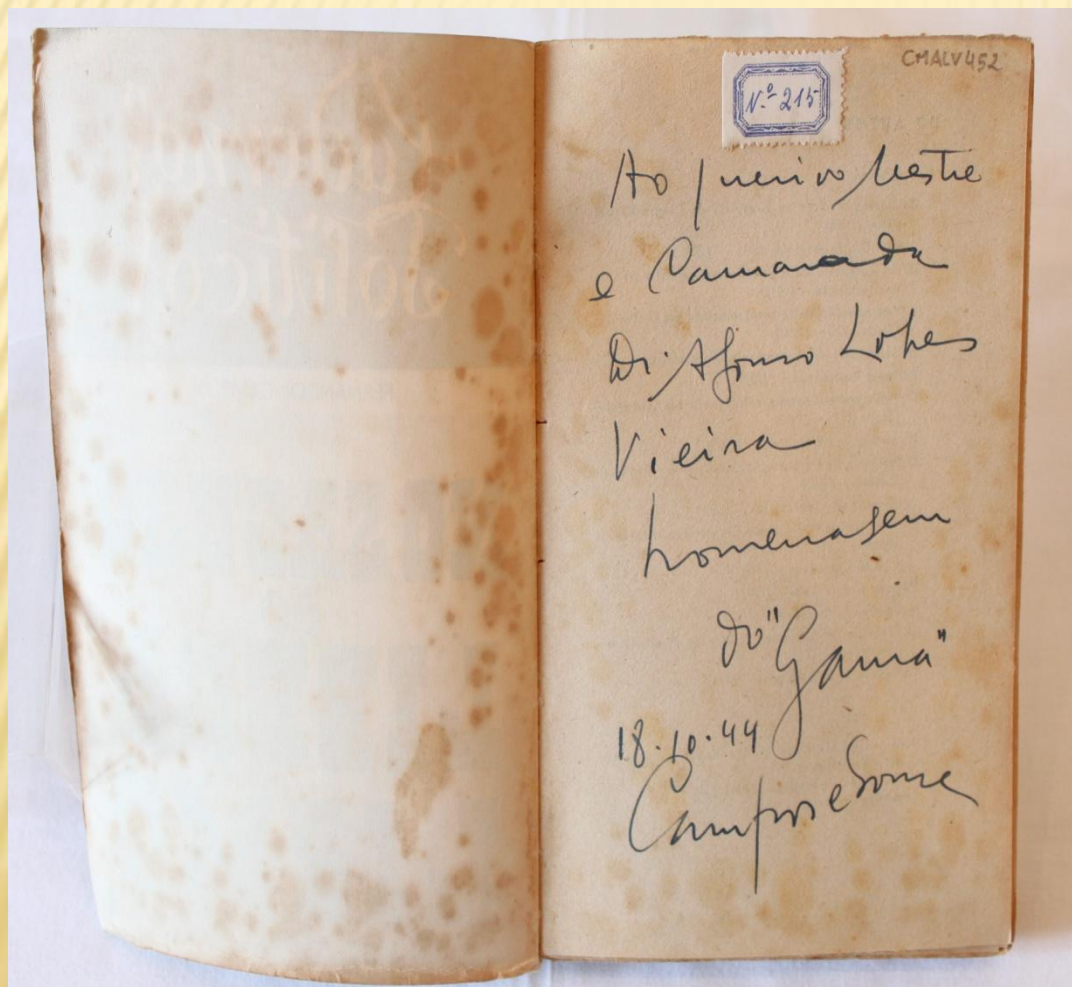 Nº 215
CMALV452
Ao querido Mestre
e Camarada
Dr. Afonso Lopes
Vieira
homenagem
do "Gama"
18.10.44
Campos e Sousa